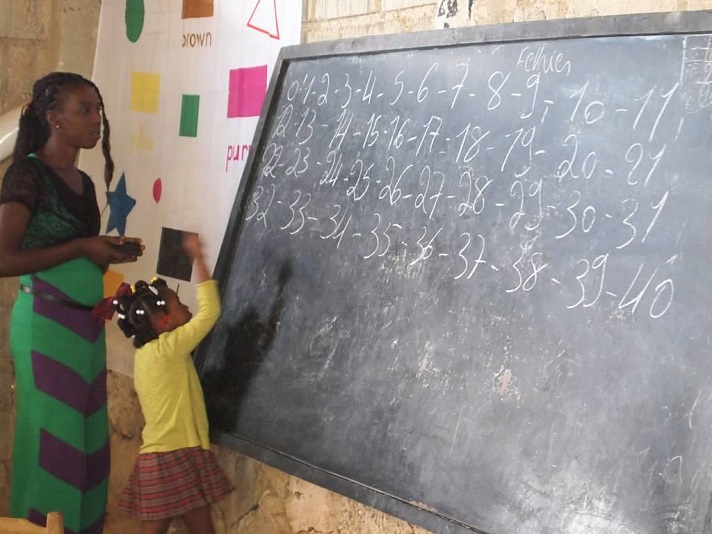 brown
purp
0-1-2-3-4-5-6-7-8-9-10-11
12-13-14-15-16-17-18-19-20-21
22-23-24-25-26-27-28-29-30-31
32-33-34-35-36-37-38-39-40